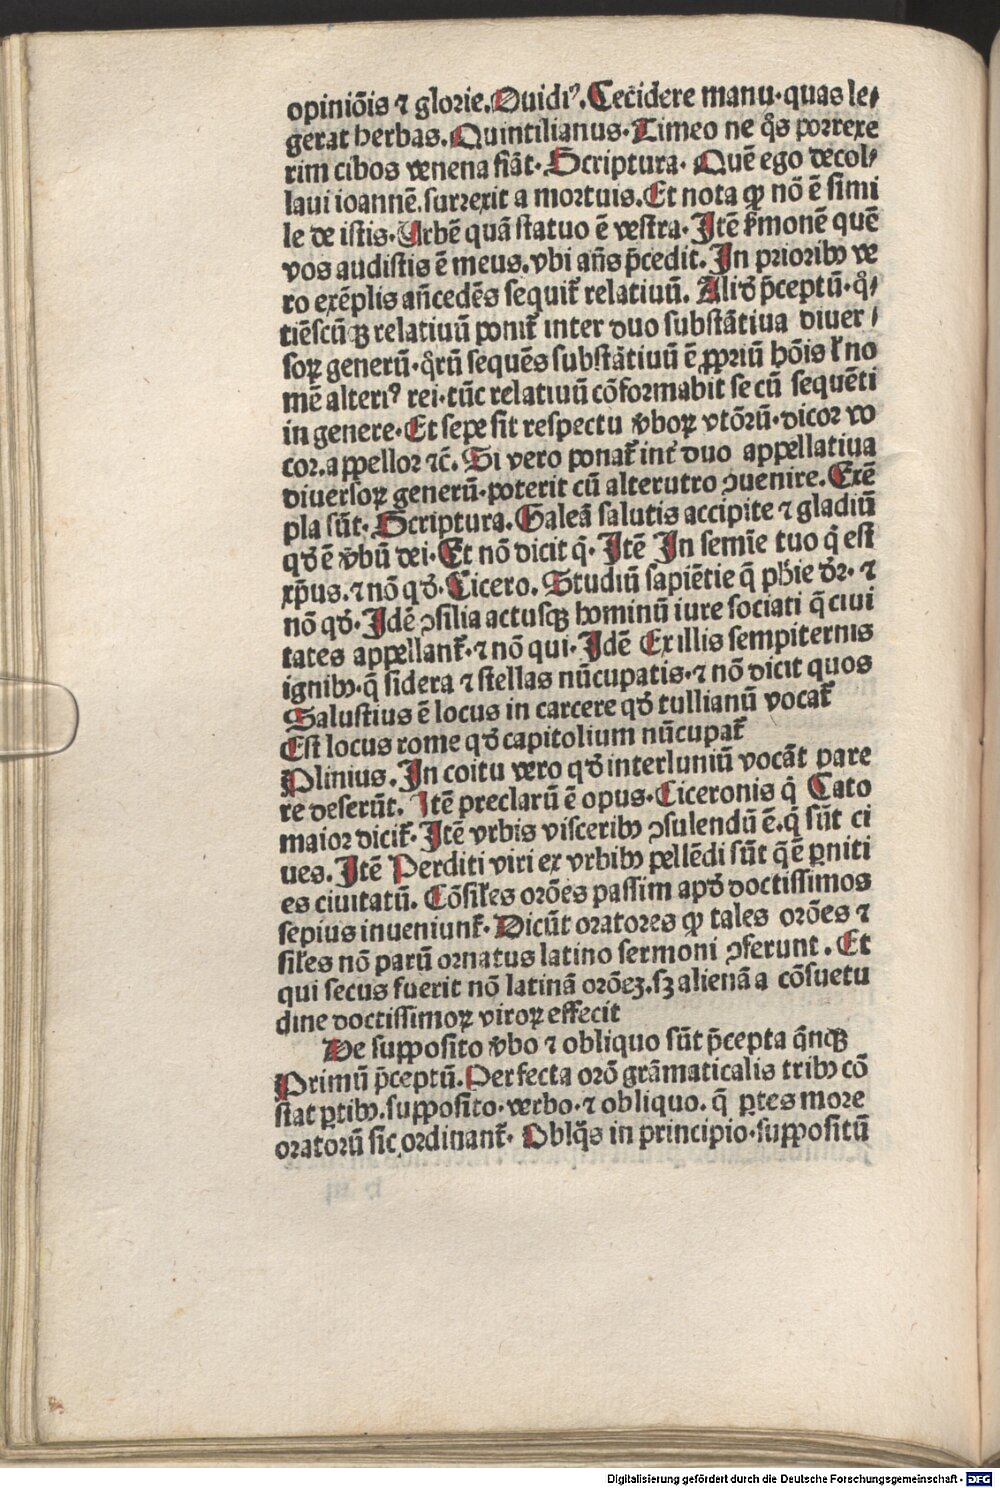 opiniōis ⁊ glorie. Ouidiꝰ. Cecidere manu·quas le⸗
gerat herbas. Quintilianus·Timeo ne q̊s porrexe
rim cibos venena fiāt· Scriptura· Quē ego decol⸗
laui ioannē. surrexit a mortuis. Et nota ꝙ nō ē simi
le de istis·Urbē quā statuo ē vestra·Itē ẜmonē quē
vos audistis ē meus. vbi an̄s p̄cedit. In prioribꝫ ve
ro exēplis an̄cedēs sequit᷑ relatiuū. Aliđ p̄ceptū·q̊⸗
tiēscūqꝫ relatiuū ponit᷑ inter duo substātiua diuer⸗
soꝝ generū·q̊rū sequēs substātiuū ē ꝓpriū hōis ł no
mē alteriꝰ rei·tūc relatiuū cōformabit se cū sequēti
in genere·Et sepe fit respectu v̄boꝝ vtōrū·dicor vo
cor. appellor ⁊c̄. Si vero ponat᷑ int᷑ duo appellatiua
diuersoꝝ generū·poterit cū alterutro ꝯuenire. Exē
pla sūt·Scriptura. Galeā salutis accipite ⁊ gladiū
qđ ē v̄bū dei·Et nō dicit q̄·Itē In semīe tuo q̄ est
xp̄us. ⁊ nō qđ·Cicero. Studiū sapiētie q̄ ph̄ie dr̄·⁊
nō qđ·Idē ꝯsilia actusqꝫ hominū iure sociati q̄ ciui
tates appellant᷑·⁊ nō qui·Idē Ex illis sempiternis
ignibꝫ·q̄ sidera ⁊ stellas nūcupatis·⁊ nō dicit quos
Salustius ē locus in carcere qđ tullianū vocat᷑
Est locus rome qđ capitolium nūcupat᷑
Plinius. In coitu vero qđ interluniū vocāt pare
re deserūt. Itē preclarū ē opus·Ciceronis q̄ Cato
maior dicit᷑·Itē vrbis visceribꝫ ꝯsulendū ē. q̄ sūt ci
ues. Itē Perditi viri ex vrbibꝫ pellēdi sūt q̄ ē ꝑniti
es ciuitatū. Cōsiles orōes passim apđ doctissimos
sepius inueniunt᷑·Dicūt oratores ꝙ tales orōes ⁊
siles nō parū ornatus latino sermoni ꝯferunt. Et
qui secus fuerit nō latinā orōeꝫ. sꝫ alienā a cōsuetu
dine doctissimoꝝ viroꝝ effecit
De supposito v̄bo ⁊ obliquo sūt p̄cepta q̄nqꝫ
Primū p̄ceptū. Perfecta orō grāmaticalis tribꝫ cō
stat ꝑtibꝫ. supposito·verbo·⁊ obliquo. q̄ ꝑtes more
oratorū sic ordinant᷑·Oblq̄s in principio·suppositū
Digitalisierung gefördert durch die Deutsche Forschungsgemeinschaft - DFG